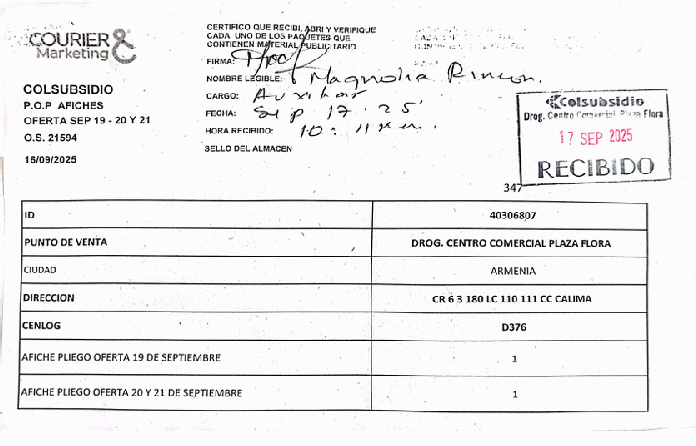 COURIER &
Marketing
COLSUBSIDIO
P.O.P AFICHES
OFERTA SEP 19 - 20 Y 21
O.S. 21594
15/09/2025
CERTIFICO QUE RECIBI, ABRI Y VERIFIQUE
CADA UNO DE LOS PAQUETES QUE
CONTIENEN MATERIAL PUBLICITARIO
FIRMA:
NOMBRE LEGIBLE: Magnolia Rincon.
CARGO: Auxiliar
FECHA: Sep 17. 25'
HORA RECIBIDO: 10:
SELLO DEL ALMACEN
Colsubsidio
Drog. Centro Comercial Plaza Flora
17 SEP 2025
RECIBIDO
347
ID 40306807
PUNTO DE VENTA DROG. CENTRO COMERCIAL PLAZA FLORA
CIUDAD ARMENIA
DIRECCION CR 6 3 180 LC 110 111 CC CALIMA
CENLOG D376
AFICHE PLIEGO OFERTA 19 DE SEPTIEMBRE 1
AFICHE PLIEGO OFERTA 20 Y 21 DE SEPTIEMBRE 1